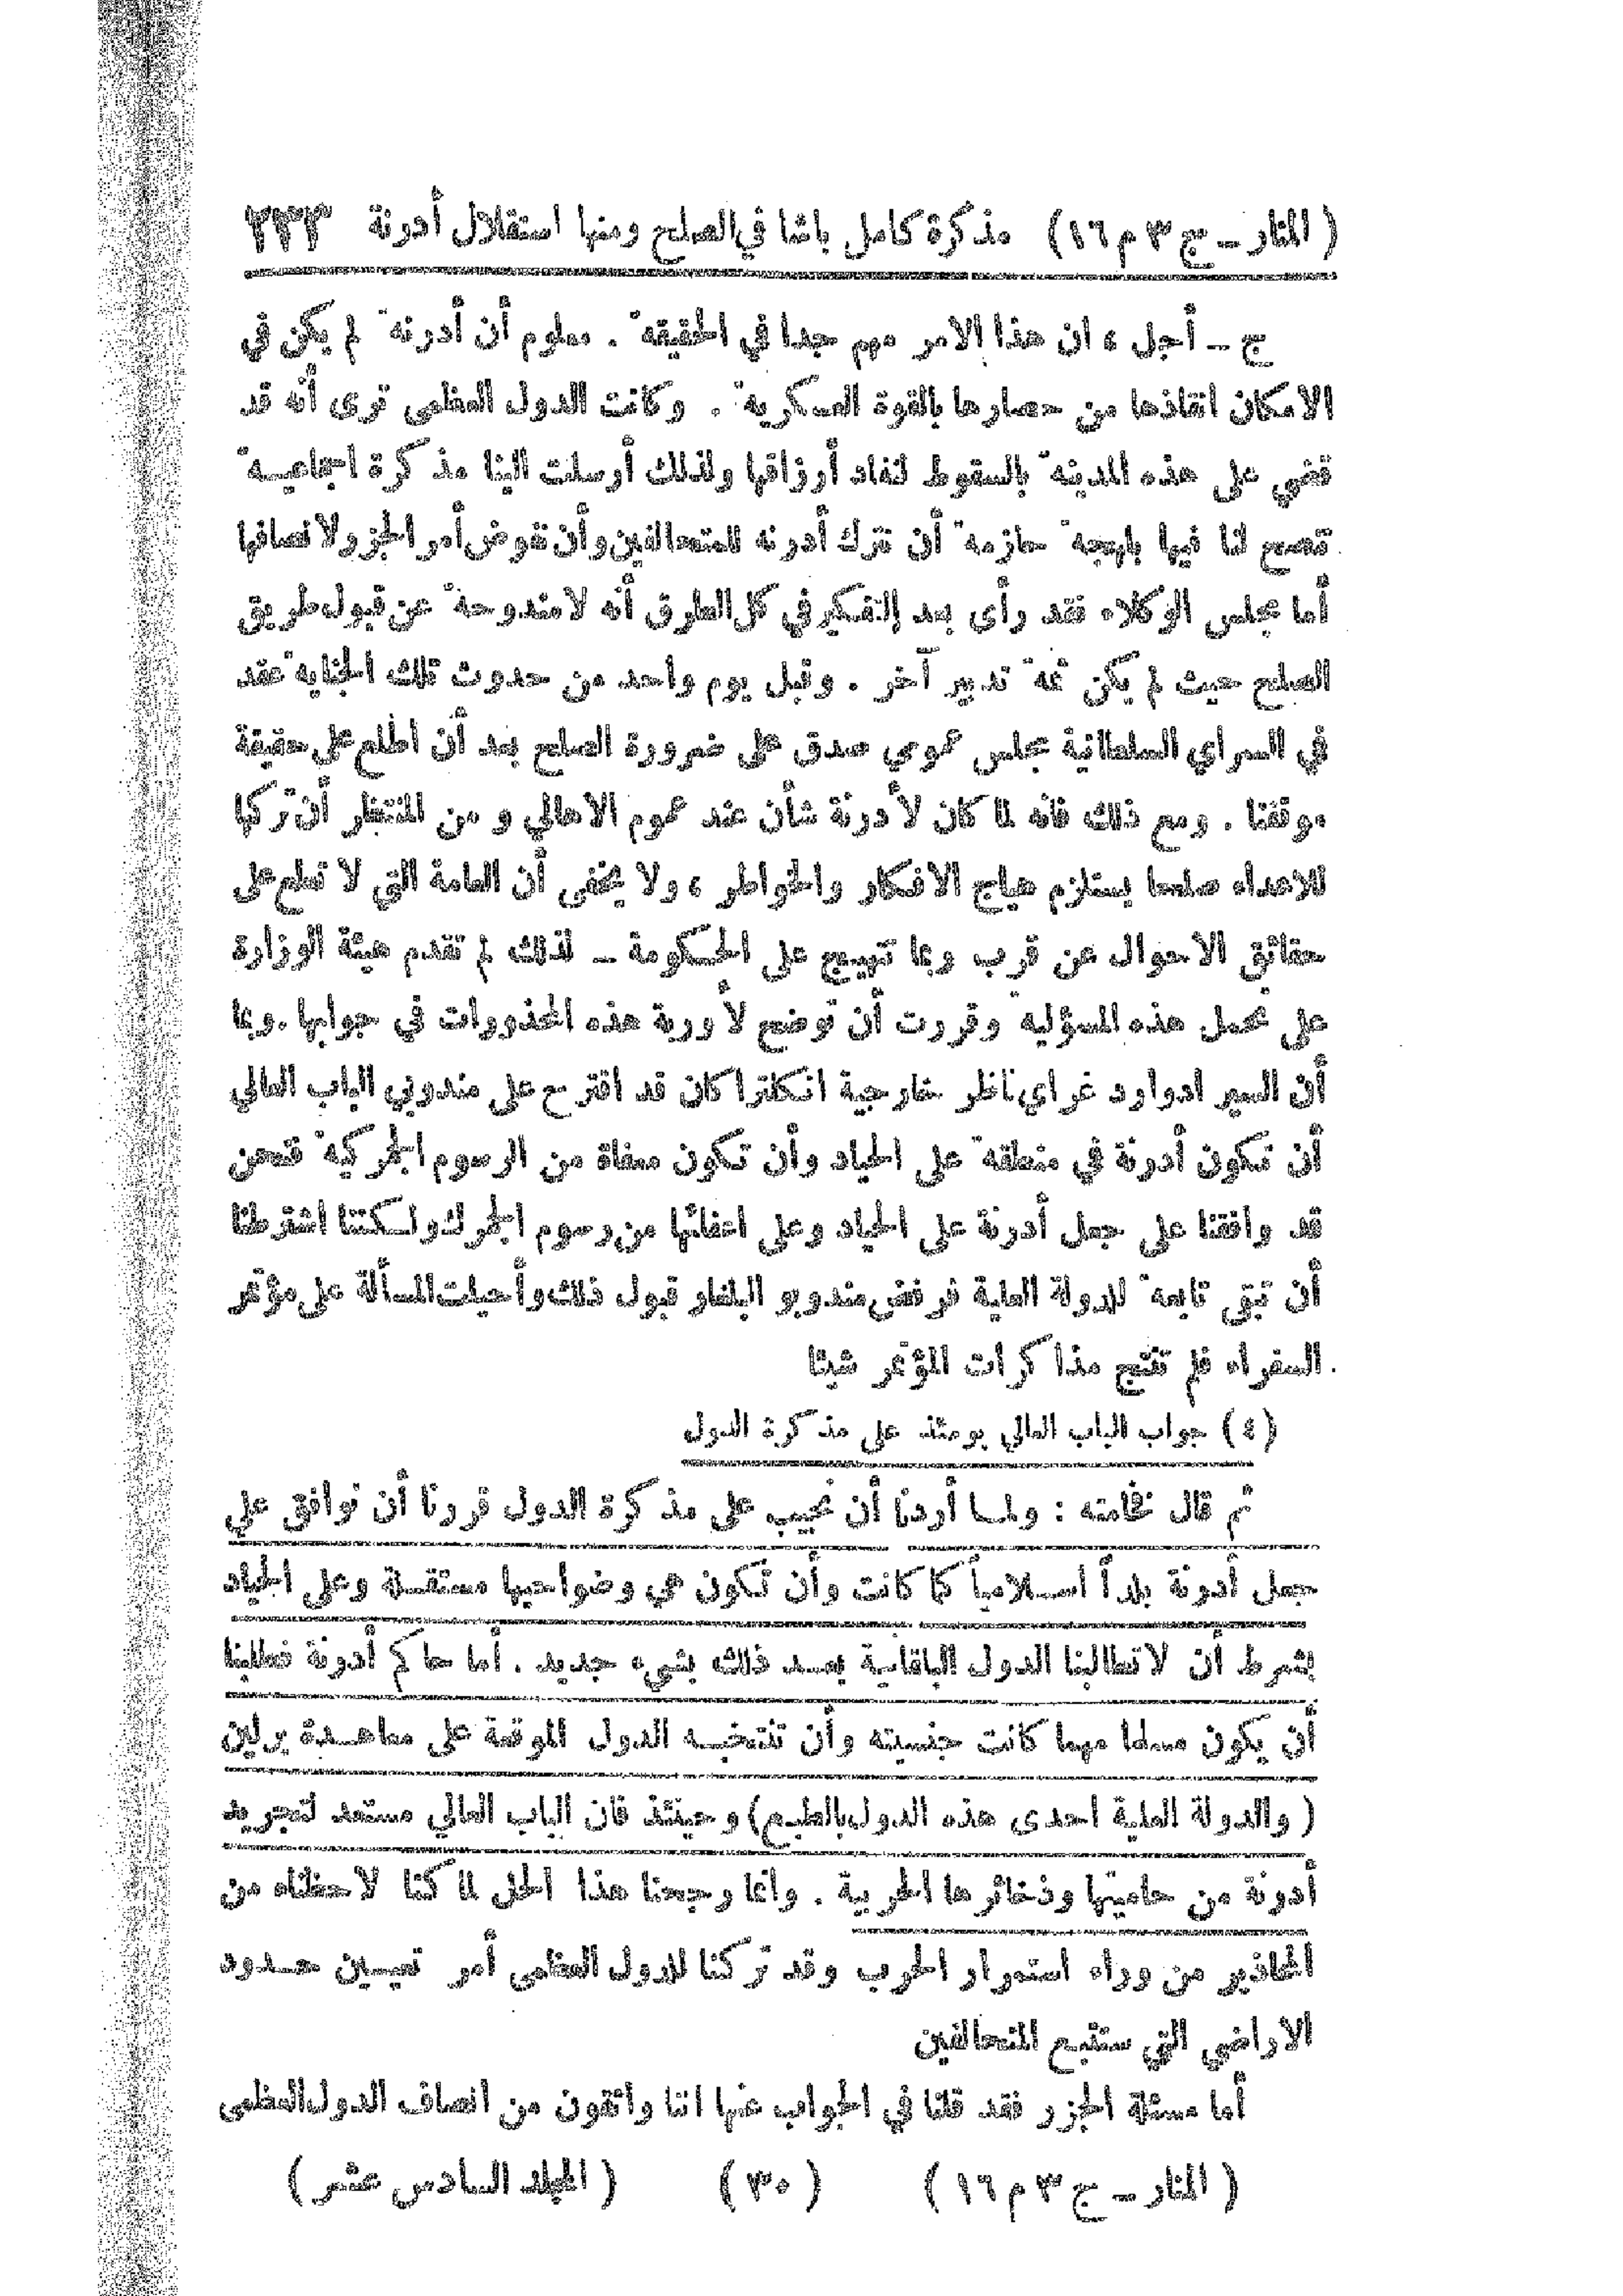 ( المنار ـ ج ٣ م ١٦ ) مذكرة كامل باشا في الصلح ومنها استقلال أدرنة ٢٣٣
ج ـ أجل ، ان هذا الامر مهم جدا في الحقيقة . معلوم أن أدرنة لم يكن في
الامكان انقاذها من حصارها بالقوة العسكرية . وكانت الدول العظمى ترى أنه قد
قضي على هذه المدينة بالسقوط لنفاد أرزاقها ولذلك أرسلت الينا مذكرة اجماعيــة
تنصح لنا فيها بلهجة حازمة أن نترك أدرنه للمتحالفين وأن نفوض أمر الجزر لانصافها
أما مجلس الوكلاء فقد رأى بعد التفكير في كل الطرق أنه لا مندوحة عن قبول طريق
الصلح حيث لم يكن ثمة تدبير آخر . وقبل يوم واحد من حدوث تلك الجناية عقد
في السراي السلطانية مجلس عمومي صدق على ضرورة الصلح بعد أن اطلع على حقيقة
موقفنا . ومع ذلك فانه لما كان لأدرنة شأن عند عموم الاهالي و من المنتظر أن تركها
للاعداء صلحا يستلزم هياج الافكار والخواطر ، ولا يخفى أن العامة التي لا تطلع على
حقائق الاحوال عن قرب ربما تتهيج على الحكومة ـ لذلك لم تقدم هيئة الوزارة
على تحمل هذه المسؤلية وقررت أن توضح لأوربة هذه المحذورات في جوابها . وبما
أن السير ادوارد غراي ناظر خارجية انكلترا كان قد اقترح على مندوبي الباب العالي
أن تكون أدرنة في منطقة على الحياد وأن تكون معفاة من الرسوم الجمركية فنحن
قد وافقنا على جعل أدرنة على الحياد وعلى اعفائها من رسوم الجمرك ولكننا اشترطنا
أن تبقى تابعة للدولة العلية فرفض مندوبو البلغار قبول ذلك وأحيلت المسألة على مؤتمر
السفراء فلم تنتج مذاكرات المؤتمر شيئا
(٤) جواب الباب العالي يومئذ على مذكرة الدول
ثم قال فخامته : ولما أردنا أن نجيب على مذكرة الدول قررنا أن نوافق على
جعل أدرنة بلداً اسلامياً كما كانت وأن تكون هي وضواحيها مستقلة وعلى الحياد
بشرط أن لا تطالبنا الدول البلقانية بعد ذلك بشيء جديد . أما حاكم أدرنة فطلبنا
أن يكون مسلما مهما كانت جنسيته وأن تنتخبه الدول الموقعة على معاهدة برلين
( والدولة العلية احدى هذه الدول بالطبع) وحينئذ فان الباب العالي مستعد لتجريد
أدرنة من حاميتها وذخائرها الحربية . وانما رجحنا هذا الحل لما كنا لاحظناه من
المحاذير من وراء استمرار الحرب وقد تركنا للدول العظمى أمر تعيين حدود
الاراضي التي ستتبع المتحالفين
أما مسئلة الجزر فقد قلنا في الجواب عنها اننا واثقون من انصاف الدول العظمى
( المنار ـ ج ٣ م ١٦ ) ( ٣٠ ) ( المجلد السادس عشر )